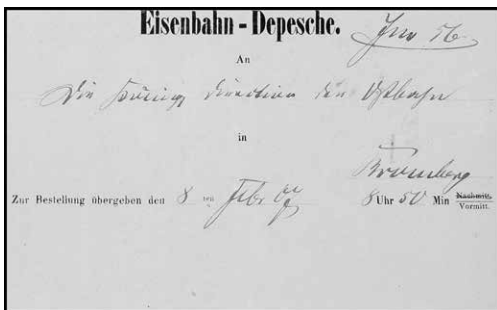 Eisenbahn - Depesche. Jno 56
An
die König. Direction der Ostbahn
in
Bromberg
Zur Bestellung übergeben den 8 ten Febr 8 Uhr 50 Min Nachmitt.
Vormitt.